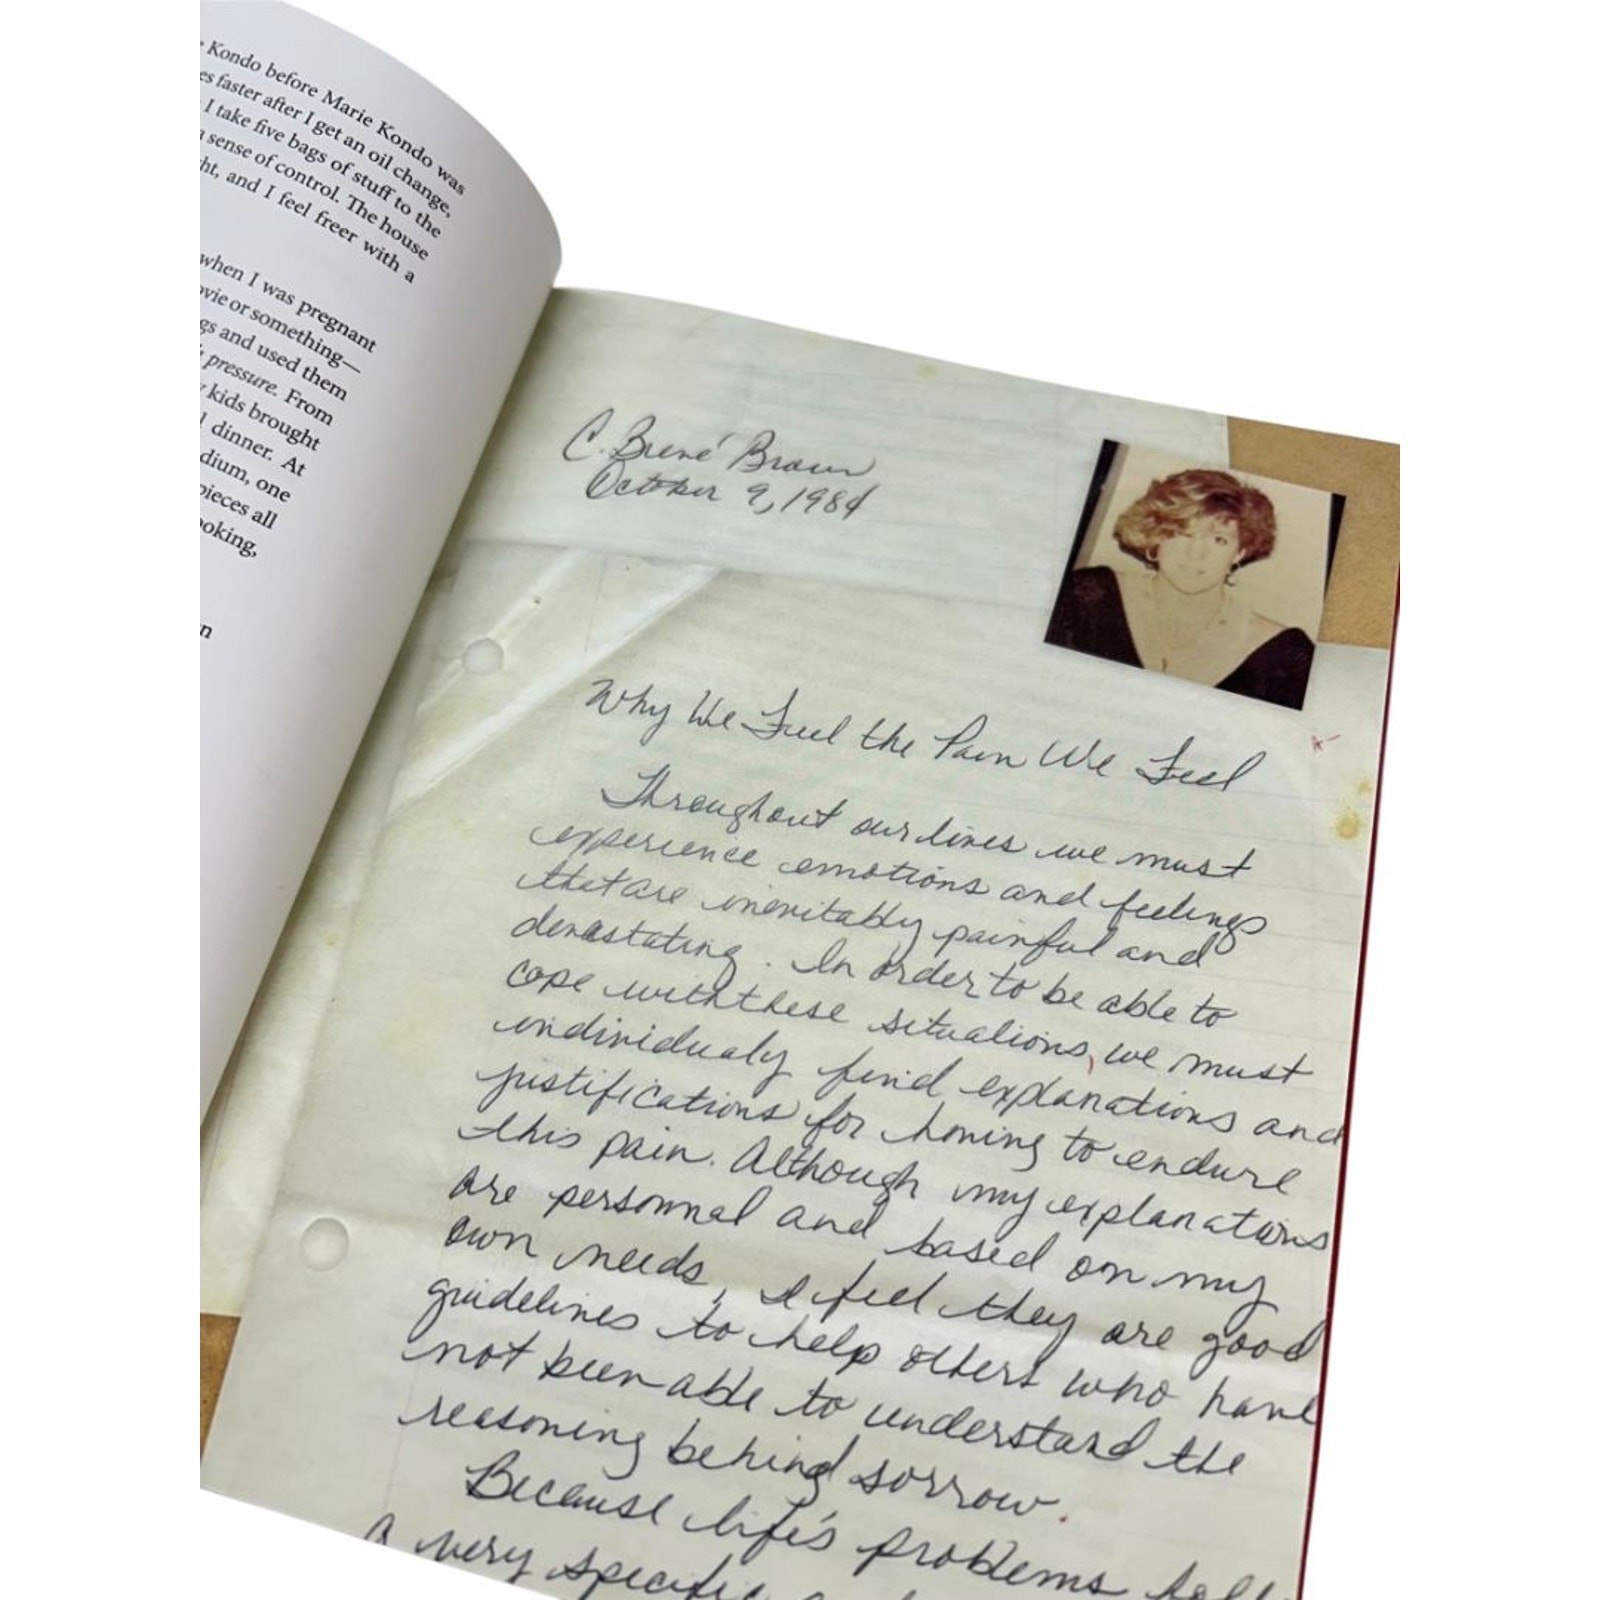 Kondo before Marie Kondo was
es faster after I get an oil change,
I take five bags of stuff to the
sense of control. The house
ht, and I feel freer with a
when I was pregnant
ovie or something—
gs and used them
pressure. From
kids brought
dinner. At
dium, one
pieces all
ooking,
n
C. Brené Brown
October 9, 1984
Why We Feel the Pain We Feel
Throughout our lives we must
experience emotions and feelings
that are inevitably painful and
devastating. In order to be able to
cope with these situations, we must
individualy find explanations and
justifications for having to endure
this pain. Although my explanations
are personnal and based on my
own needs, I feel they are good
guidelines to help others who have
not been able to understand the
reasoning behind sorrow.
Because life's problems
a very specific